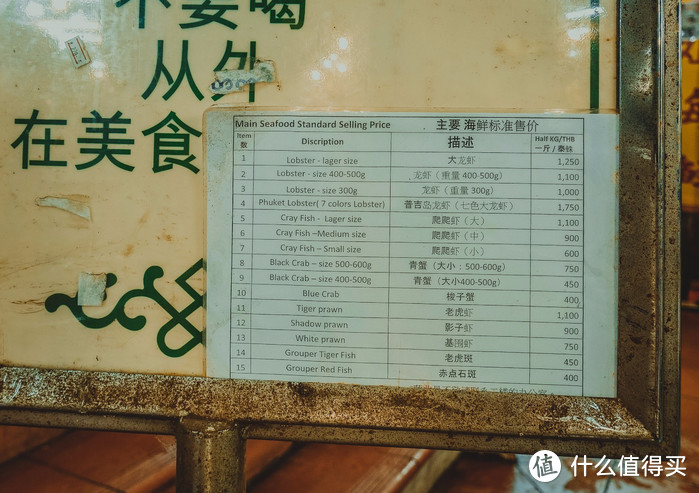 不要喝
从外
在美食
Main Seafood Standard Selling Price 主要 海鲜标准售价
Item 数 Discription 描述 Half KG/THB 一斤/泰铢
1 Lobster - lager size 大龙虾 1,250
2 Lobster - size 400-500g 龙虾（重量 400-500g） 1,100
3 Lobster - size 300g 龙虾（重量 300g） 1,000
4 Phuket Lobster( 7 colors Lobster) 普吉岛龙虾（七色大龙虾） 1,750
5 Cray Fish - Lager size 爬爬虾（大） 1,100
6 Cray Fish –Medium size 爬爬虾（中） 900
7 Cray Fish – Small size 爬爬虾（小） 600
8 Black Crab – size 500-600g 青蟹（大小：500-600g） 750
9 Black Crab – size 400-500g 青蟹（大小400-500g） 450
10 Blue Crab 梭子蟹 400
11 Tiger prawn 老虎虾 1,100
12 Shadow prawn 影子虾 900
13 White prawn 基围虾 750
14 Grouper Tiger Fish 老虎斑 450
15 Grouper Red Fish 赤点石斑 400
值 什么值得买